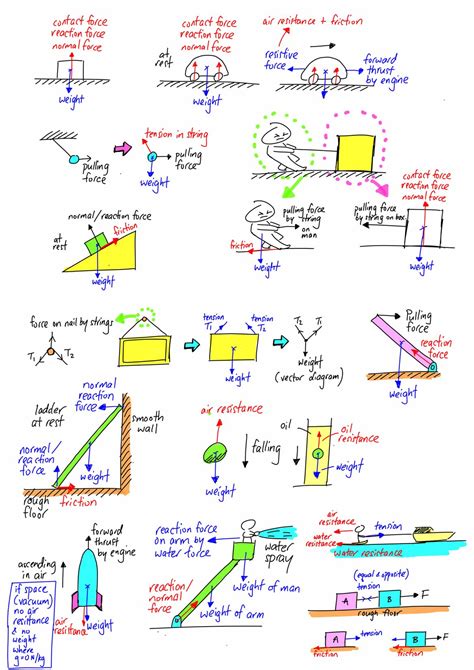 contact force
reaction force
normal force
weight
contact force
reaction force
normal force
at
rest
weight
air resistance + friction
resistive
force
forward
thrust
by engine
weight
pulling
force
tension in string
pulling
force
weight
contact force
reaction force
normal force
pulling force
by string
on
man
friction
weight
pulling force
by string on box
weight
normal/reaction force
friction
at
rest
weight
force on nail by strings
T1
T2
tension
T1
tension
T2
weight
T2
T1
weight
(vector diagram)
Pulling
force
reaction
force
weight
normal
reaction
force
ladder
at rest
smooth
wall
normal/
reaction
force
weight
rough
floor
friction
air resistance
falling
weight
oil
oil
resistance
weight
forward
thrust
by engine
ascending
in air
if space
(vacuum)
no air
resistance
& no
weight
where
g=0N/kg
air
resistance
weight
reaction force
on arm by
water force
water
spray
weight of man
reaction/
normal
force
weight of arm
air
resistance
tension
water resistance
(equal & opposite)
tension
A
B
F
rough floor
A
tension
friction
tension
B
F
friction